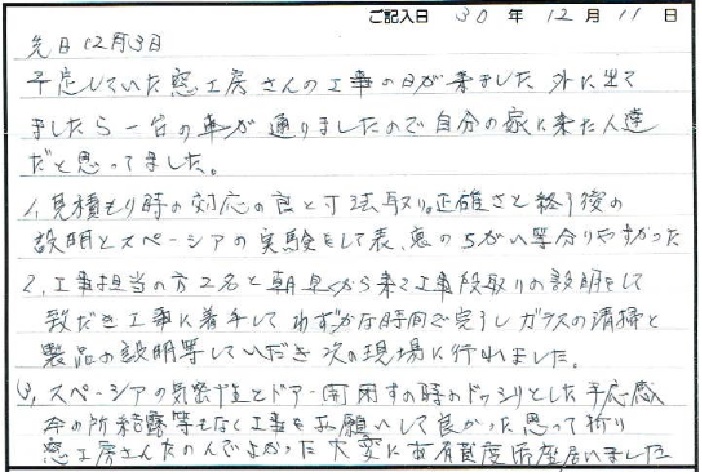 ご記入日 30 年 12 月 11 日
先日12月3日
予定していた窓工房さんの工事の日が来ました 外に出て
ましたら一台の車が通りましたので自分の家に来た人達
だと思ってました。
1、見積もり時の対応の良と寸法取り。正確さと終う後の
説明とスペーシアの実験をして表、裏のちがい等分りやすかった
2、工事担当の方2名と朝早くから来て工事段取りの説明をして
致だき工事に着手してわずかな時間で完了しガラスの清掃と
製品の説明等していただき次の現場に行れました。
3、スペーシアの気密性とドアー開閉すの時のドッシリとした手応感
今の所結露等もなく工事をお願いして良かった思って祈り
窓工房さんたのんでよかった大変に